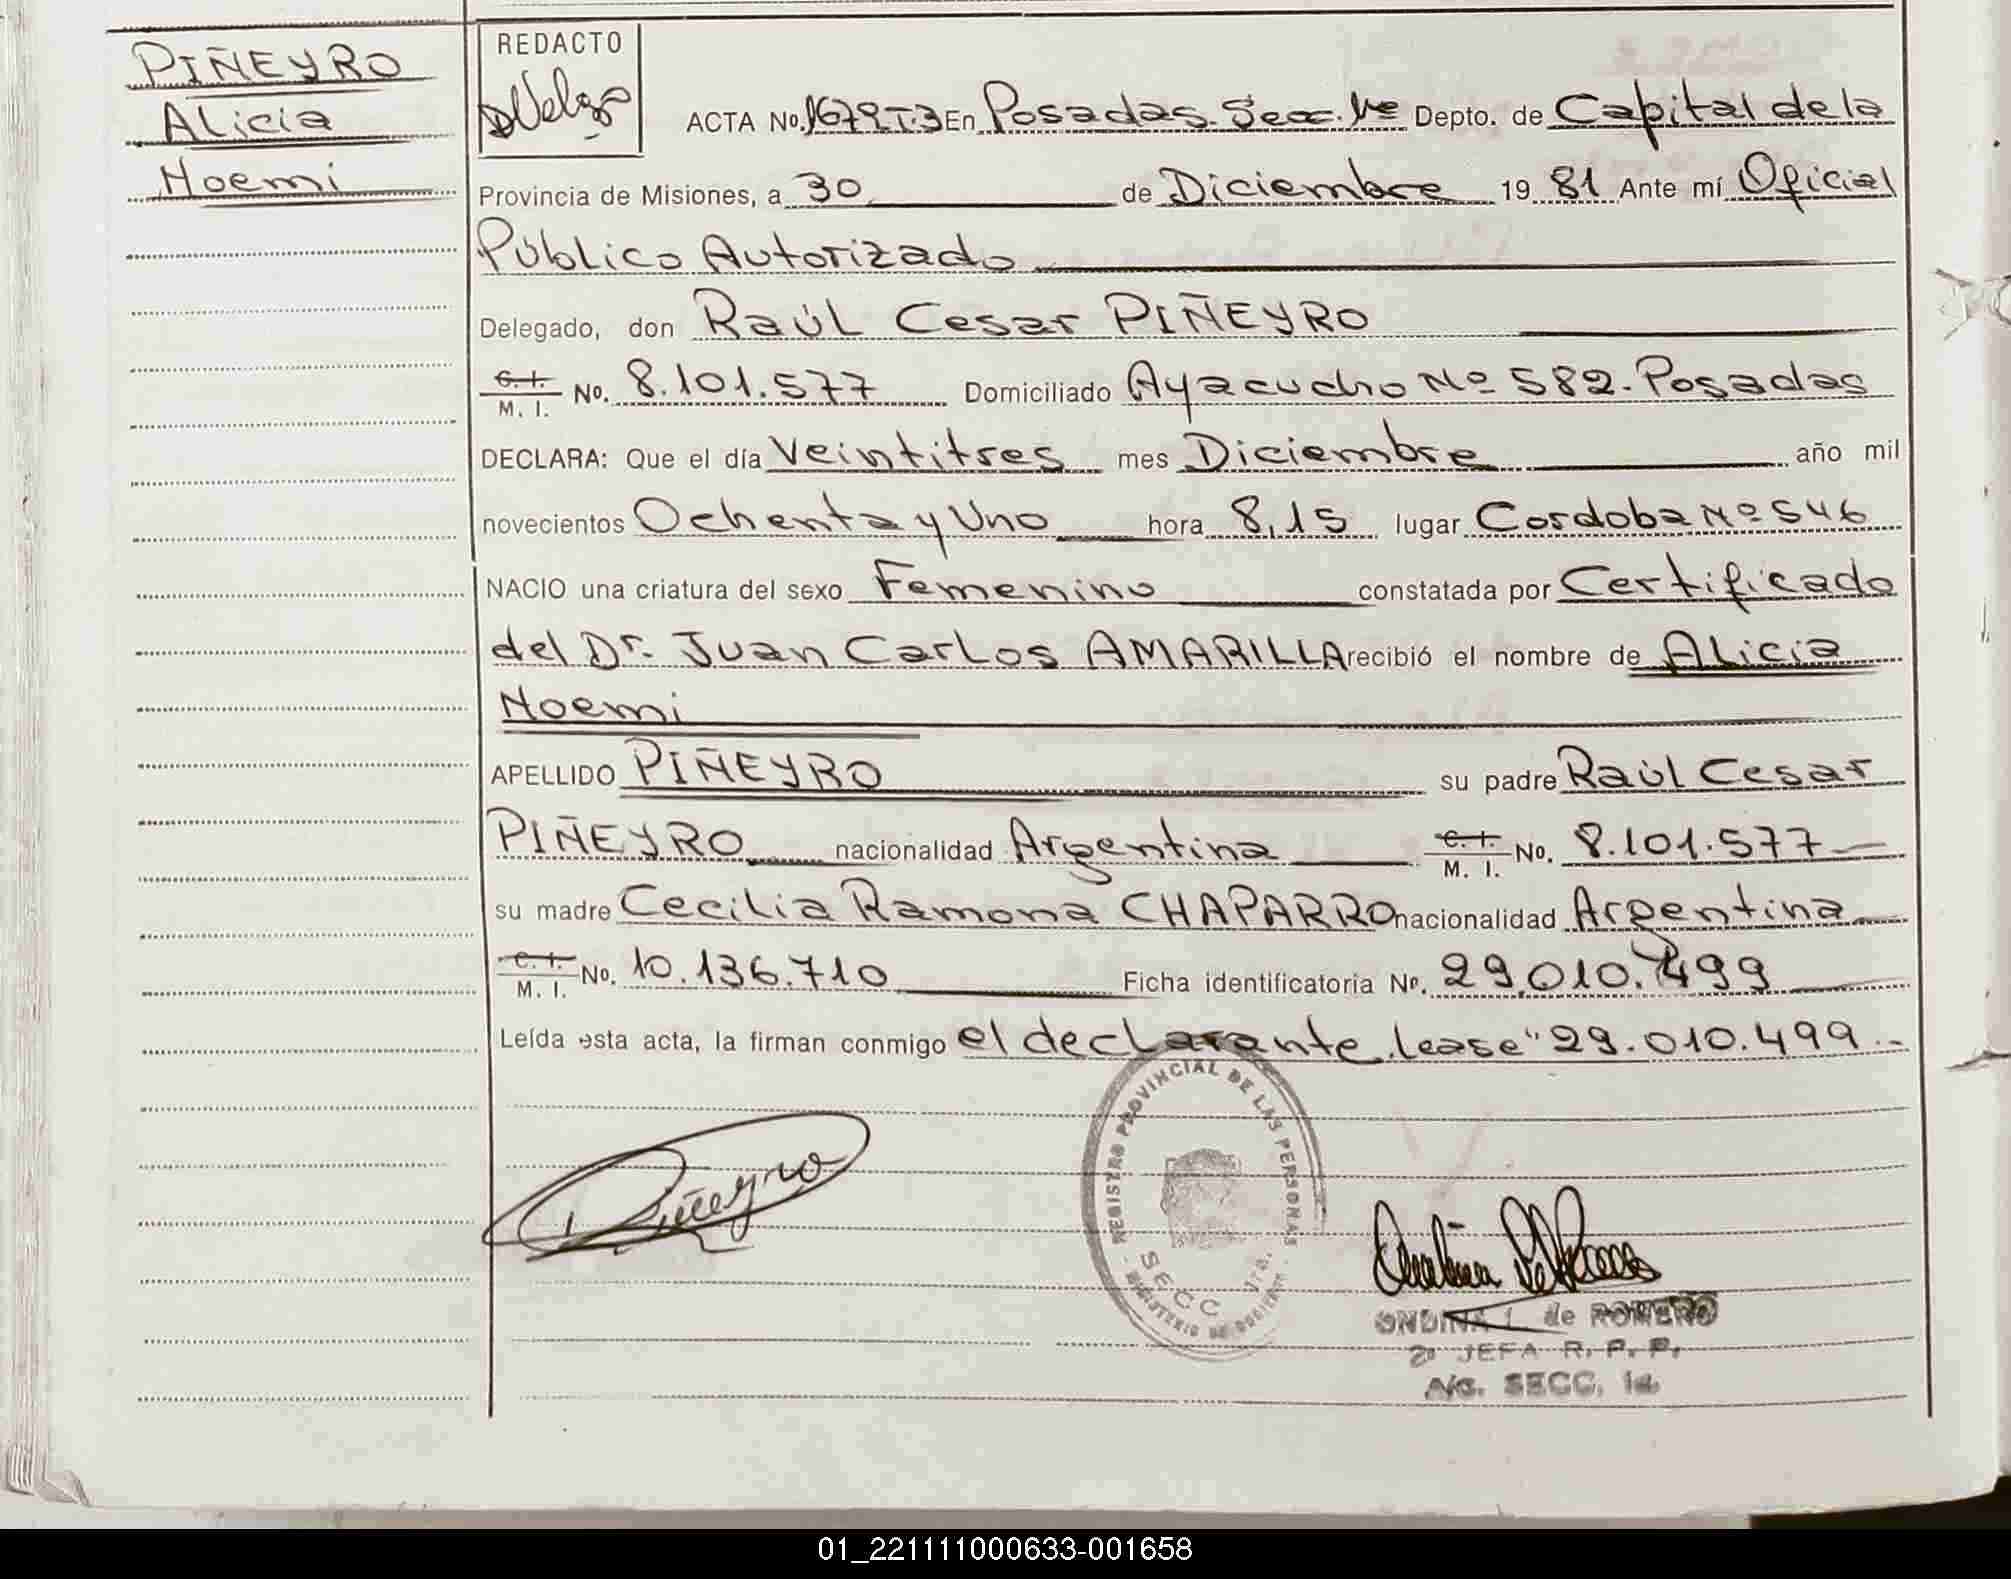 PIÑEYRO
Alicia
Noemi
REDACTO
ACTA No. 1679 T-3 En Posadas. Secc. 1ra Depto. de Capital de la
Provincia de Misiones, a 30 de Diciembre 19 81 Ante mí Oficial
Público Autorizado
Delegado, don Raúl Cesar PIÑEYRO
C. I. / M. I. No. 8.101.577 Domiciliado Ayacucho Nº 582. Posadas
DECLARA: Que el día Veintitres mes Diciembre año mil
novecientos Ochenta y Uno hora 8,15 lugar Cordoba Nº 546
NACIO una criatura del sexo Femenino constatada por Certificado
del Dr. Juan Carlos AMARILLA recibió el nombre de Alicia
Noemi
APELLIDO PIÑEYRO su padre Raúl Cesar
PIÑEYRO nacionalidad Argentina C. I. / M. I. No. 8.101.577
su madre Cecilia Ramona CHAPARRO nacionalidad Argentina
C. I. / M. I. No. 10.136.710 Ficha identificatoria No. 29.010.499
Leída esta acta, la firman conmigo el declarante. lease "29.010.499.-
REGISTRO PROVINCIAL DE LAS PERSONAS
SECC 1ra.
MINISTERIO DE GOBIERNO
Piñeyro
ONDINA I. de ROMERO
2º JEFA R. P. P.
A/C. SECC. 1a.
01_221111000633-001658